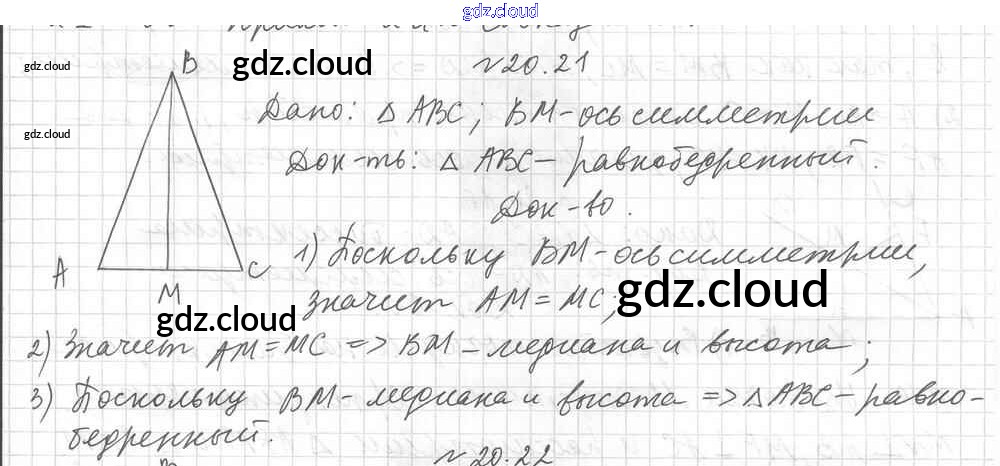 gdz.cloud
№20.21
gdz.cloud
gdz.cloud
B
Дано: △ ABC; BM-ось симметрии
gdz.cloud
Док-ть: △ ABC - равнобедренный.
Док-во.
1) Поскольку BM-ось симметрии,
A
C
M
значит AM = MC;
gdz.cloud
gdz.cloud
2) Значит AM = MC => BM - медиана и высота;
3) Поскольку BM - медиана и высота => △ ABC - равно-
бедренный.
№20.22